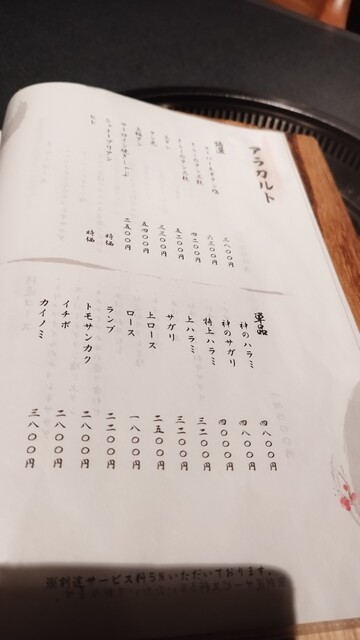 アラカルト
特選
三八〇〇円
六三〇〇円
四二〇〇円
五二〇〇円
三三〇〇円
五四〇〇円
二五〇〇円
シャトーブリアン 時価
ヒレ 時価
単品
神のハラミ 四八〇〇円
神のサガリ 四八〇〇円
特上ハラミ 四〇〇〇円
上ハラミ 三二〇〇円
サガリ 三二〇〇円
上ロース 二五〇〇円
ロース 一八〇〇円
ランプ 二二〇〇円
トモサンカク 二八〇〇円
イチボ 二八〇〇円
カイノミ 三八〇〇円
※別途サービス料5%いただいております。